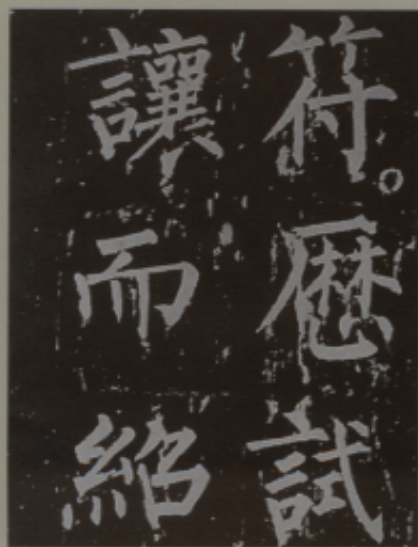 符。歷試
讓而紹